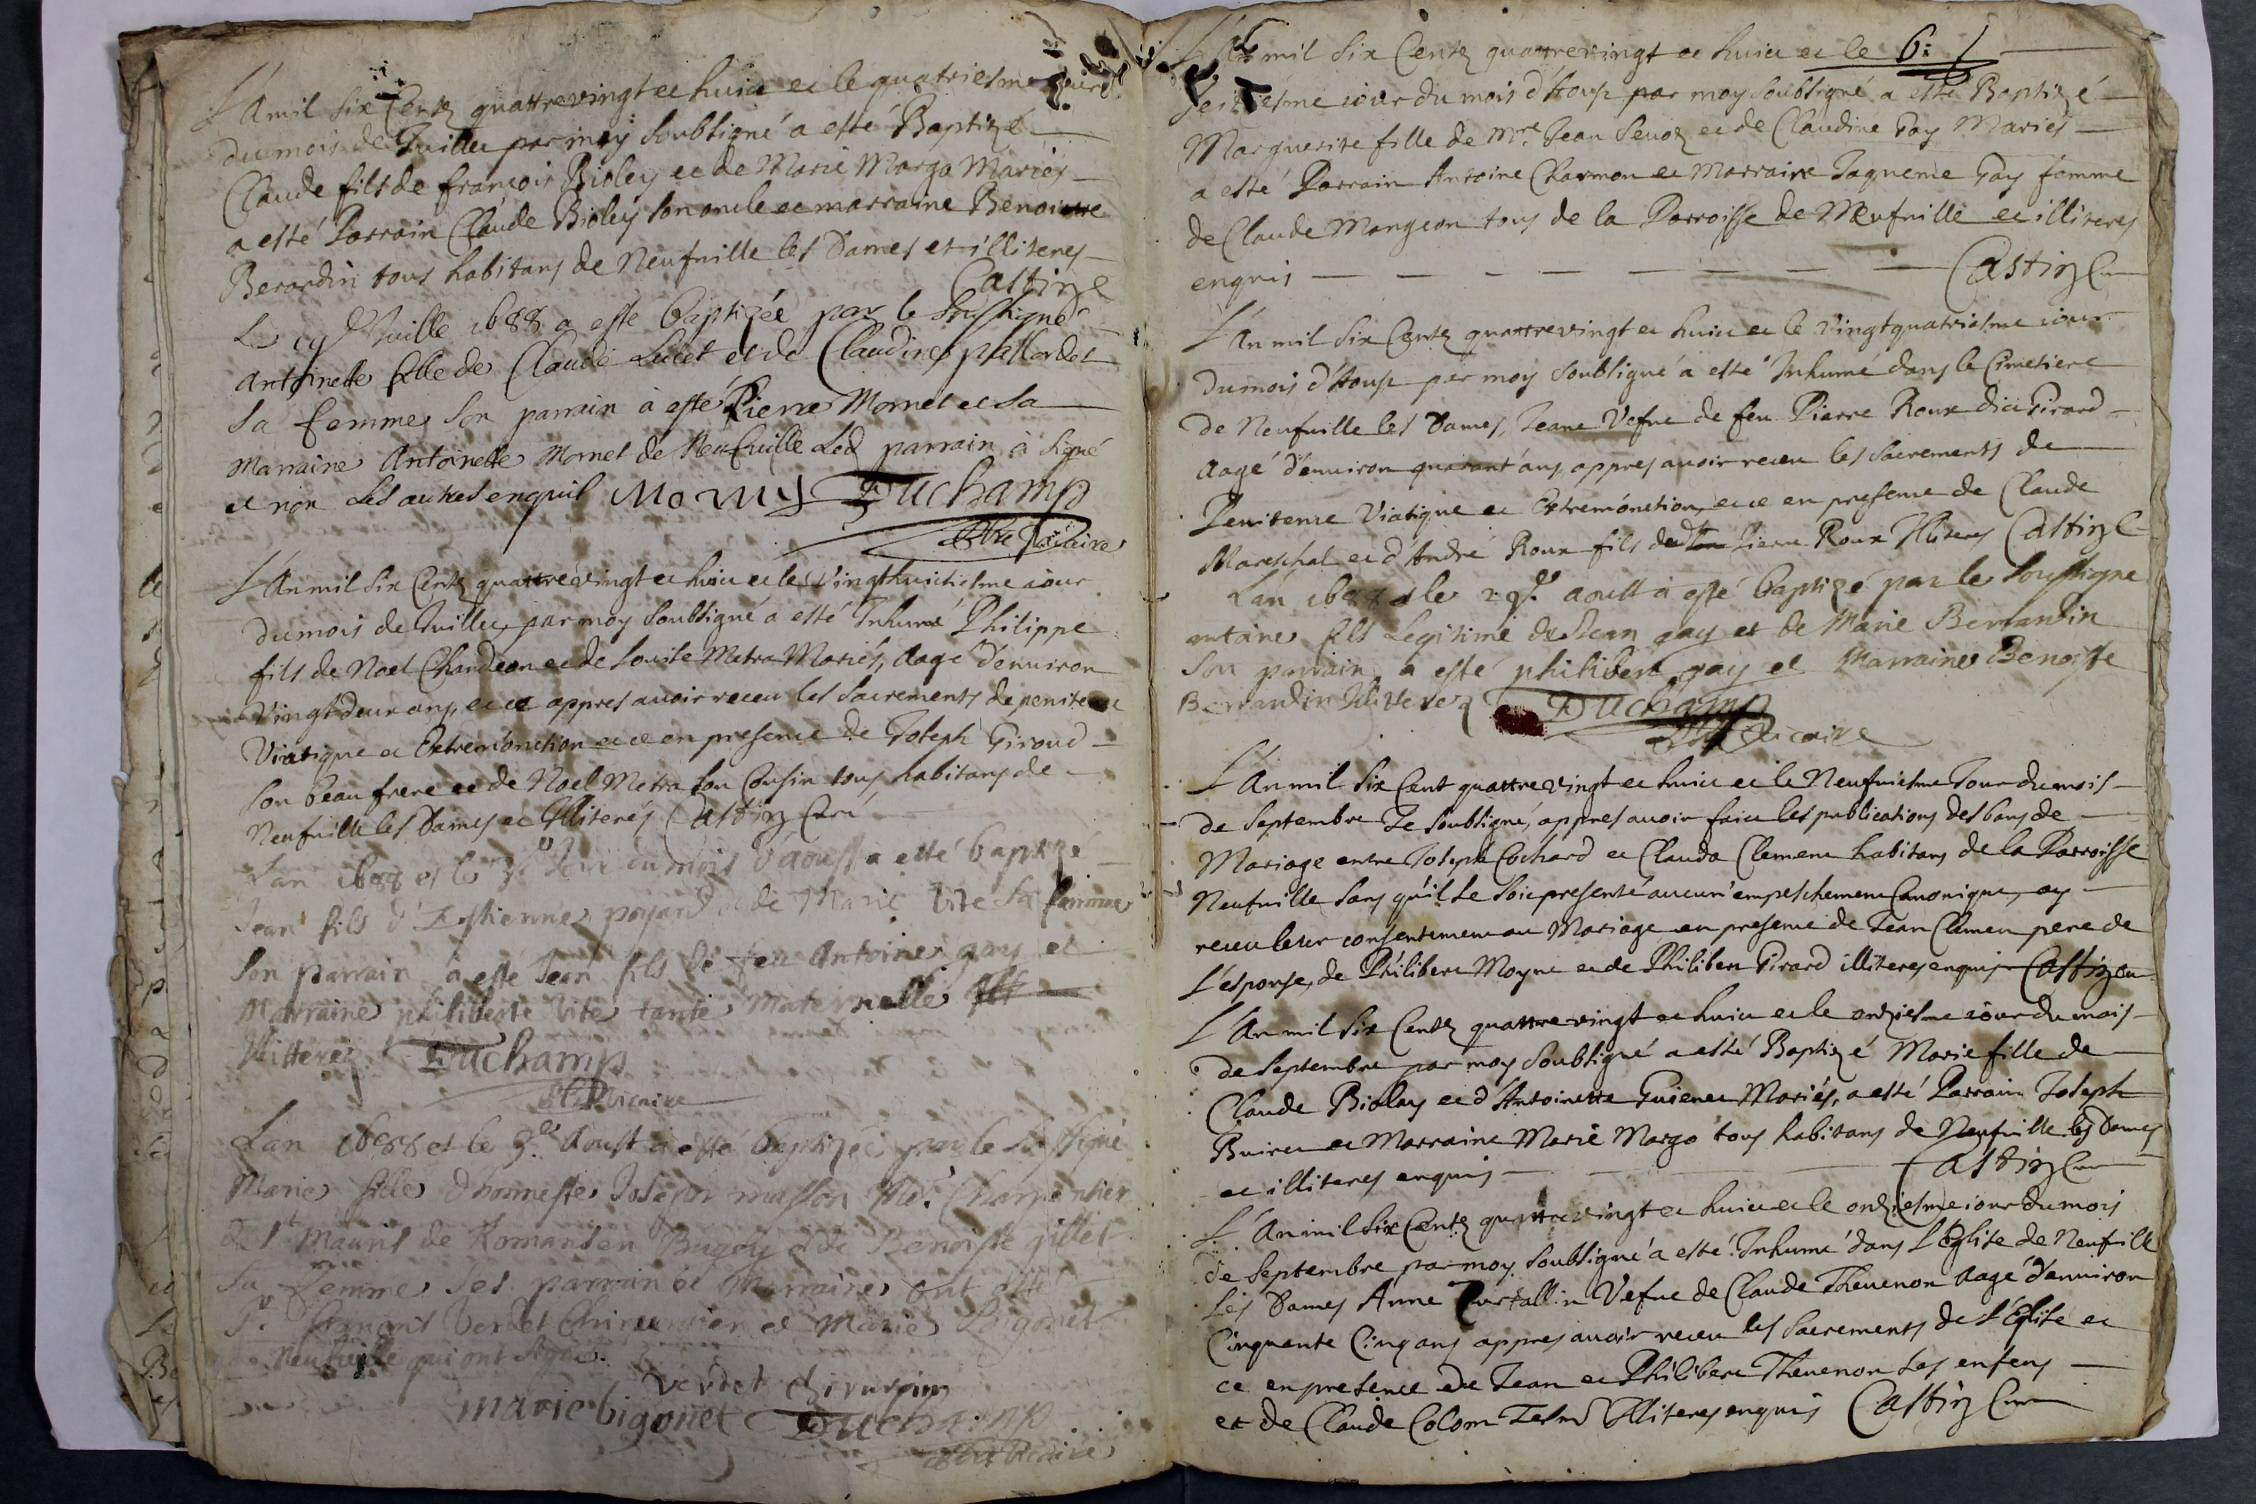 L'An mil Six Centz quattrevingt et huict et le quatriesme jour
du mois de Juillet par moy soubsigné a esté Baptizé
Claude fils de francois Bioley et de Marie Margo Mariés
a esté Parrain Claude Bioley son oncle et marraine Benoitte
Berardin tous habitans de Neufville les Dames et illiteres
Castin C
Le Juille 1688 a esté baptizée par le soussigné
Antoinette fille de Claude Lucet et de Claudine
sa femme son parrain a esté Pierre Mornet et sa
Marraine Antoinette Mornet de Neufville Led parrain à signé
et non Les autres enquis Mornet Duchamp
Vicaire
L'An mil Six Centz quattrevingt et huict et le Vingthuictiesme jour
du mois de Juillet, par moy soubsigné a esté Inhumé Philippe
fils de Noel Chandeon et de Louise Metra Mariés, Aagé d'environ
Vingt deux ans, et ce appres avoir receu les Sacrements de penitence
Viatique et Extremónction et ce en presence de Joseph Giroud
son beau frere et de Noel Metra son Cousin tous habitans de
Neufville les Dames et Illiterés Castin Curé
Lan 1688 et le jour du mois d'aoust a esté baptizé
Jean fils d'Estienne poyard et de Marie Vite sa femme
son parrain à esté Jean fils de feu Antoine gay et
Marraine philiberte Vite tante Maternelle
Illitterez Duchamp
Vicaire
Lan 1688 et le 9.e Aoust a esté baptizée par le soussigné
Marie fille d'honneste Joseph masson Me. Charpentier
de St Mauris de Romans en Bugey et de Benoiste gillet
sa femme ses parrain et Marraine ont esté
Sr. Verdet Chirurgien et Marie Bigonet
Neufville qui ont signé.
Verdet chirurgien
marie bigonet Duchamp
Vicaire
L'An mil Six Centz quattrevingt et huict et le 6:
seiziesme jour du mois d'Aoust par moy soubsigné a esté Baptizé
Marguerite fille de Mre. Jean Sevoz et de Claudine Gay Mariés
a esté Parrain Antoine Charmon et Marraine Jaqueme Gay femme
de Claude Mangeon tous de la Parroisse de Neufville et illiteres
enquis — Castin Cu
L'An mil Six Centz quattrevingt et huict et le Vingtquatriesme jour
du mois d'Aoust par moy soubsigné a esté Inhumé dans le Cimetiere
de Neufville les Dames, Jeane Vefve de feu Pierre Roux dict Girard
Aagé d'environ quarant'ans, appres avoir receu les Sacrements de
Penitence Viatique et Extremónction, et ce en presence de Claude
Mareschal et d'André Roux fils de Pierre Roux Illiteres Castin C
Lan 1688 et le 29.e aoust à esté baptizé par le soussigne
antoine fils Legitime de Jean gay et de Marie Bernardin
Son parrain a esté philibert gay et Marraine Benoiste
Bernardin Illiterez Duchamp
Vicaire
L'An mil Six Cent quattrevingt et huict et le Neufviesme Jour du mois
de Septembre Je soubsigné, appres avoir faict les publications des bans de
Mariage entre Joseph Cochard et Clauda Clement habitans de la Parroisse
Neufville sans qu'il se soit presenté aucun' empeschement Canonique, ay
receu leur consentement au Mariage en presence de Jean Clement pere de
L'esponse, de Philibert Moyne et de Philibert Girard illiteres enquis Castin Cu
L'An mil Six Centz quattrevingt et huict et le onziesme jour du mois
de Septembre par moy soubsigné a esté Baptizé Marie fille de
Claude Biolay et d'Antoinette Guienet Mariés, a esté Parrain Joseph
Buiret et Marraine Marie Margo tous habitans de Neufville les Dames
et illiteres enquis — Castin Cu
L'An mil Six Centz quattrevingt et huict et le onziesme jour du mois
de Septembre par moy soubsigné a esté Inhumé dans L'Eglise de Neufville
Les Dames Anne Vefve de Claude Thevenon Aagé d'environ
Cinquante Cinq ans appres avoir receu les Sacrements de L'Eglise et
ce en presence de Jean et Philibert Thevenon ses enfens
et de Claude Colom Illiteres enquis Castin Cu